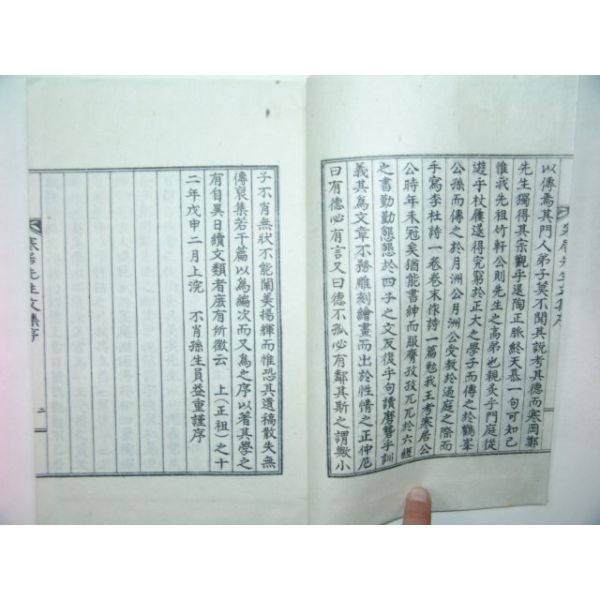 以傳喬其門人弟子莫不聞其說考其德而寒岡鄭
先生獨得其宗觀乎退陶正脈終天恭一句可知已
惟我先祖竹軒公則先生之高弟也親炙于門庭從
遊乎杖屨遂得究窮於正大之學子而傳之於鶴峯
公孫而傳之於月洲公月洲公受教於過庭之際而
手寫李杜詩一卷卷末作詩一篇勉我王考寒居公
公時年未冠矣猶能書紳而服膺孜孜兀兀於六經
之書勤勤懇懇於四子之文反復乎句讀磨礱乎訓
義其為文章不務雕刻繪畫而出於性情之正仲尼
曰有德必有言又曰德不孤必有鄰其斯之謂歟小
子不肖無狀不能闡美揚輝而惟恐其遺稿散失無
傳裒集若干篇以為編次而又為之序以著其學之
有自異日續文類者庶有所徵云 上(正祖)之十
二年戊申二月上浣 不肖孫生員益重謹序
寒居先生文集序
二